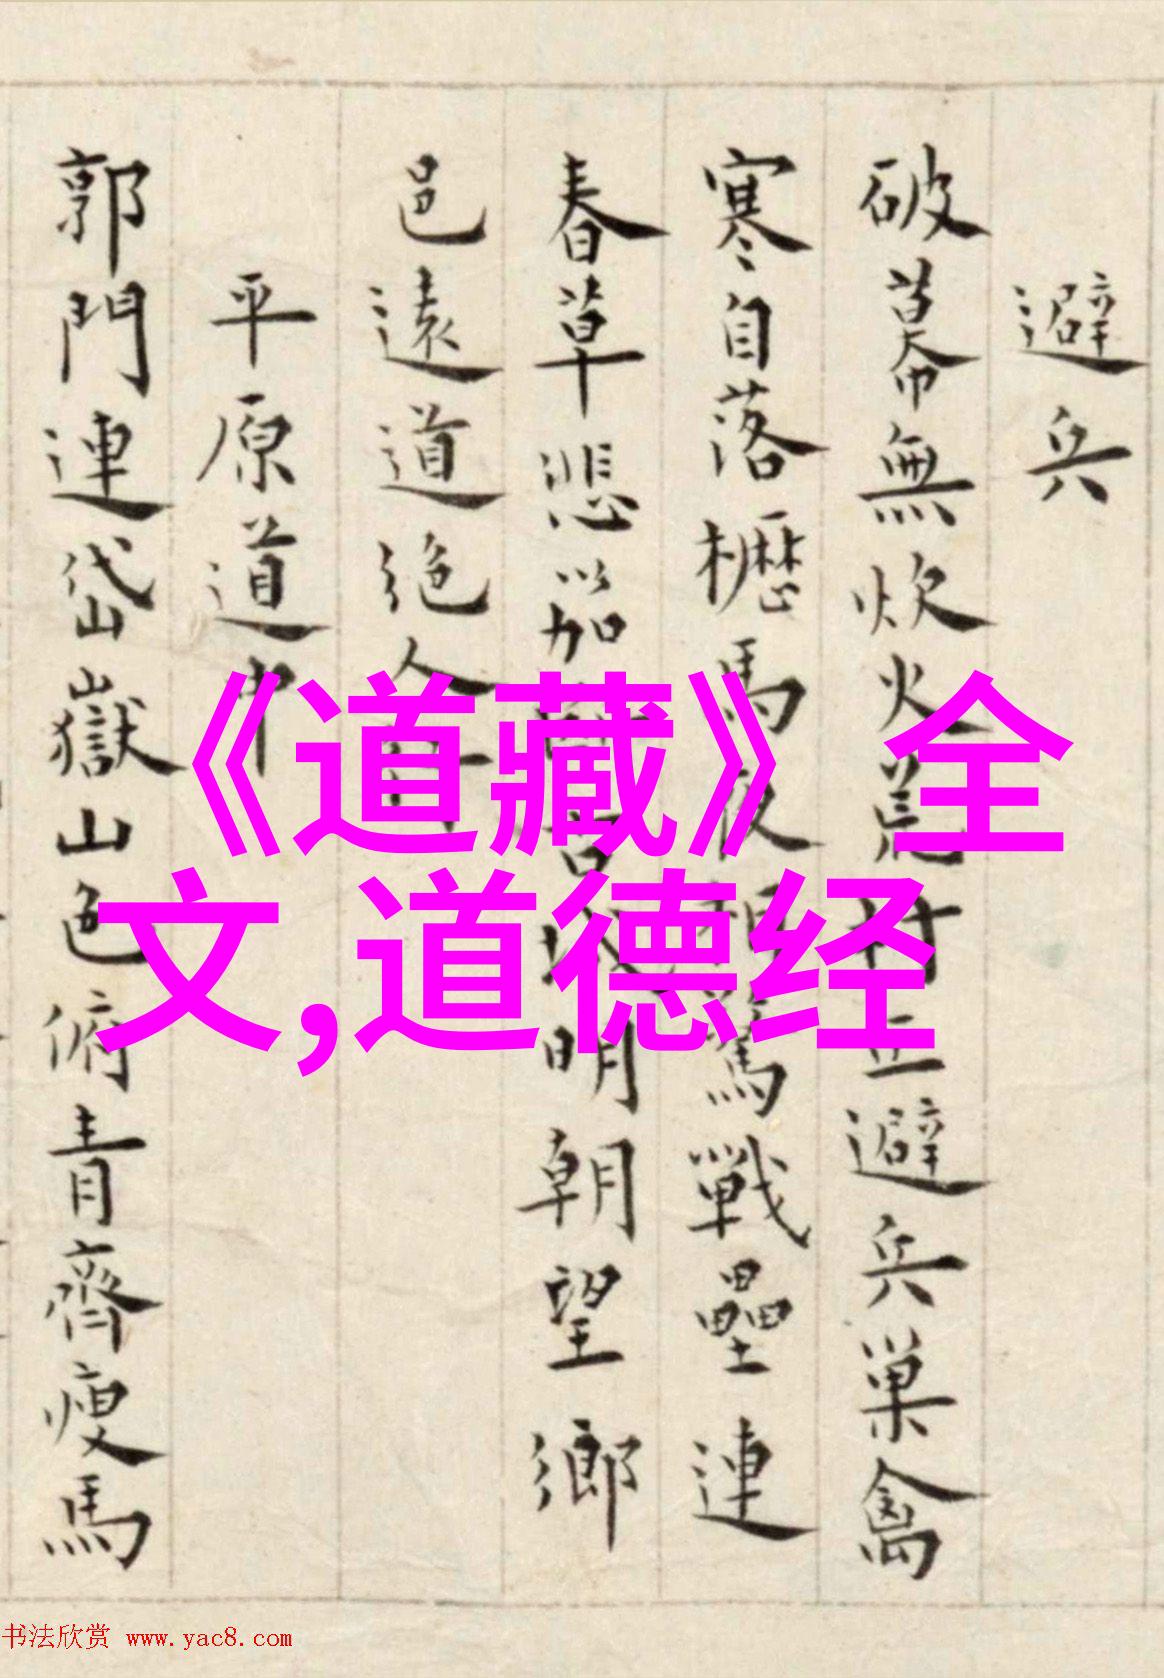 避兵
破幕無炊火荒村正避兵巢禽
寒自落櫪馬夜相驚戰壘連
春草悲笳明朝望鄉
邑遠道絶人行
平原道中
郭門連岱嶽山色俯青齊瘦馬
《道藏》全
文,道德经
书法欣赏 www.yac8.com